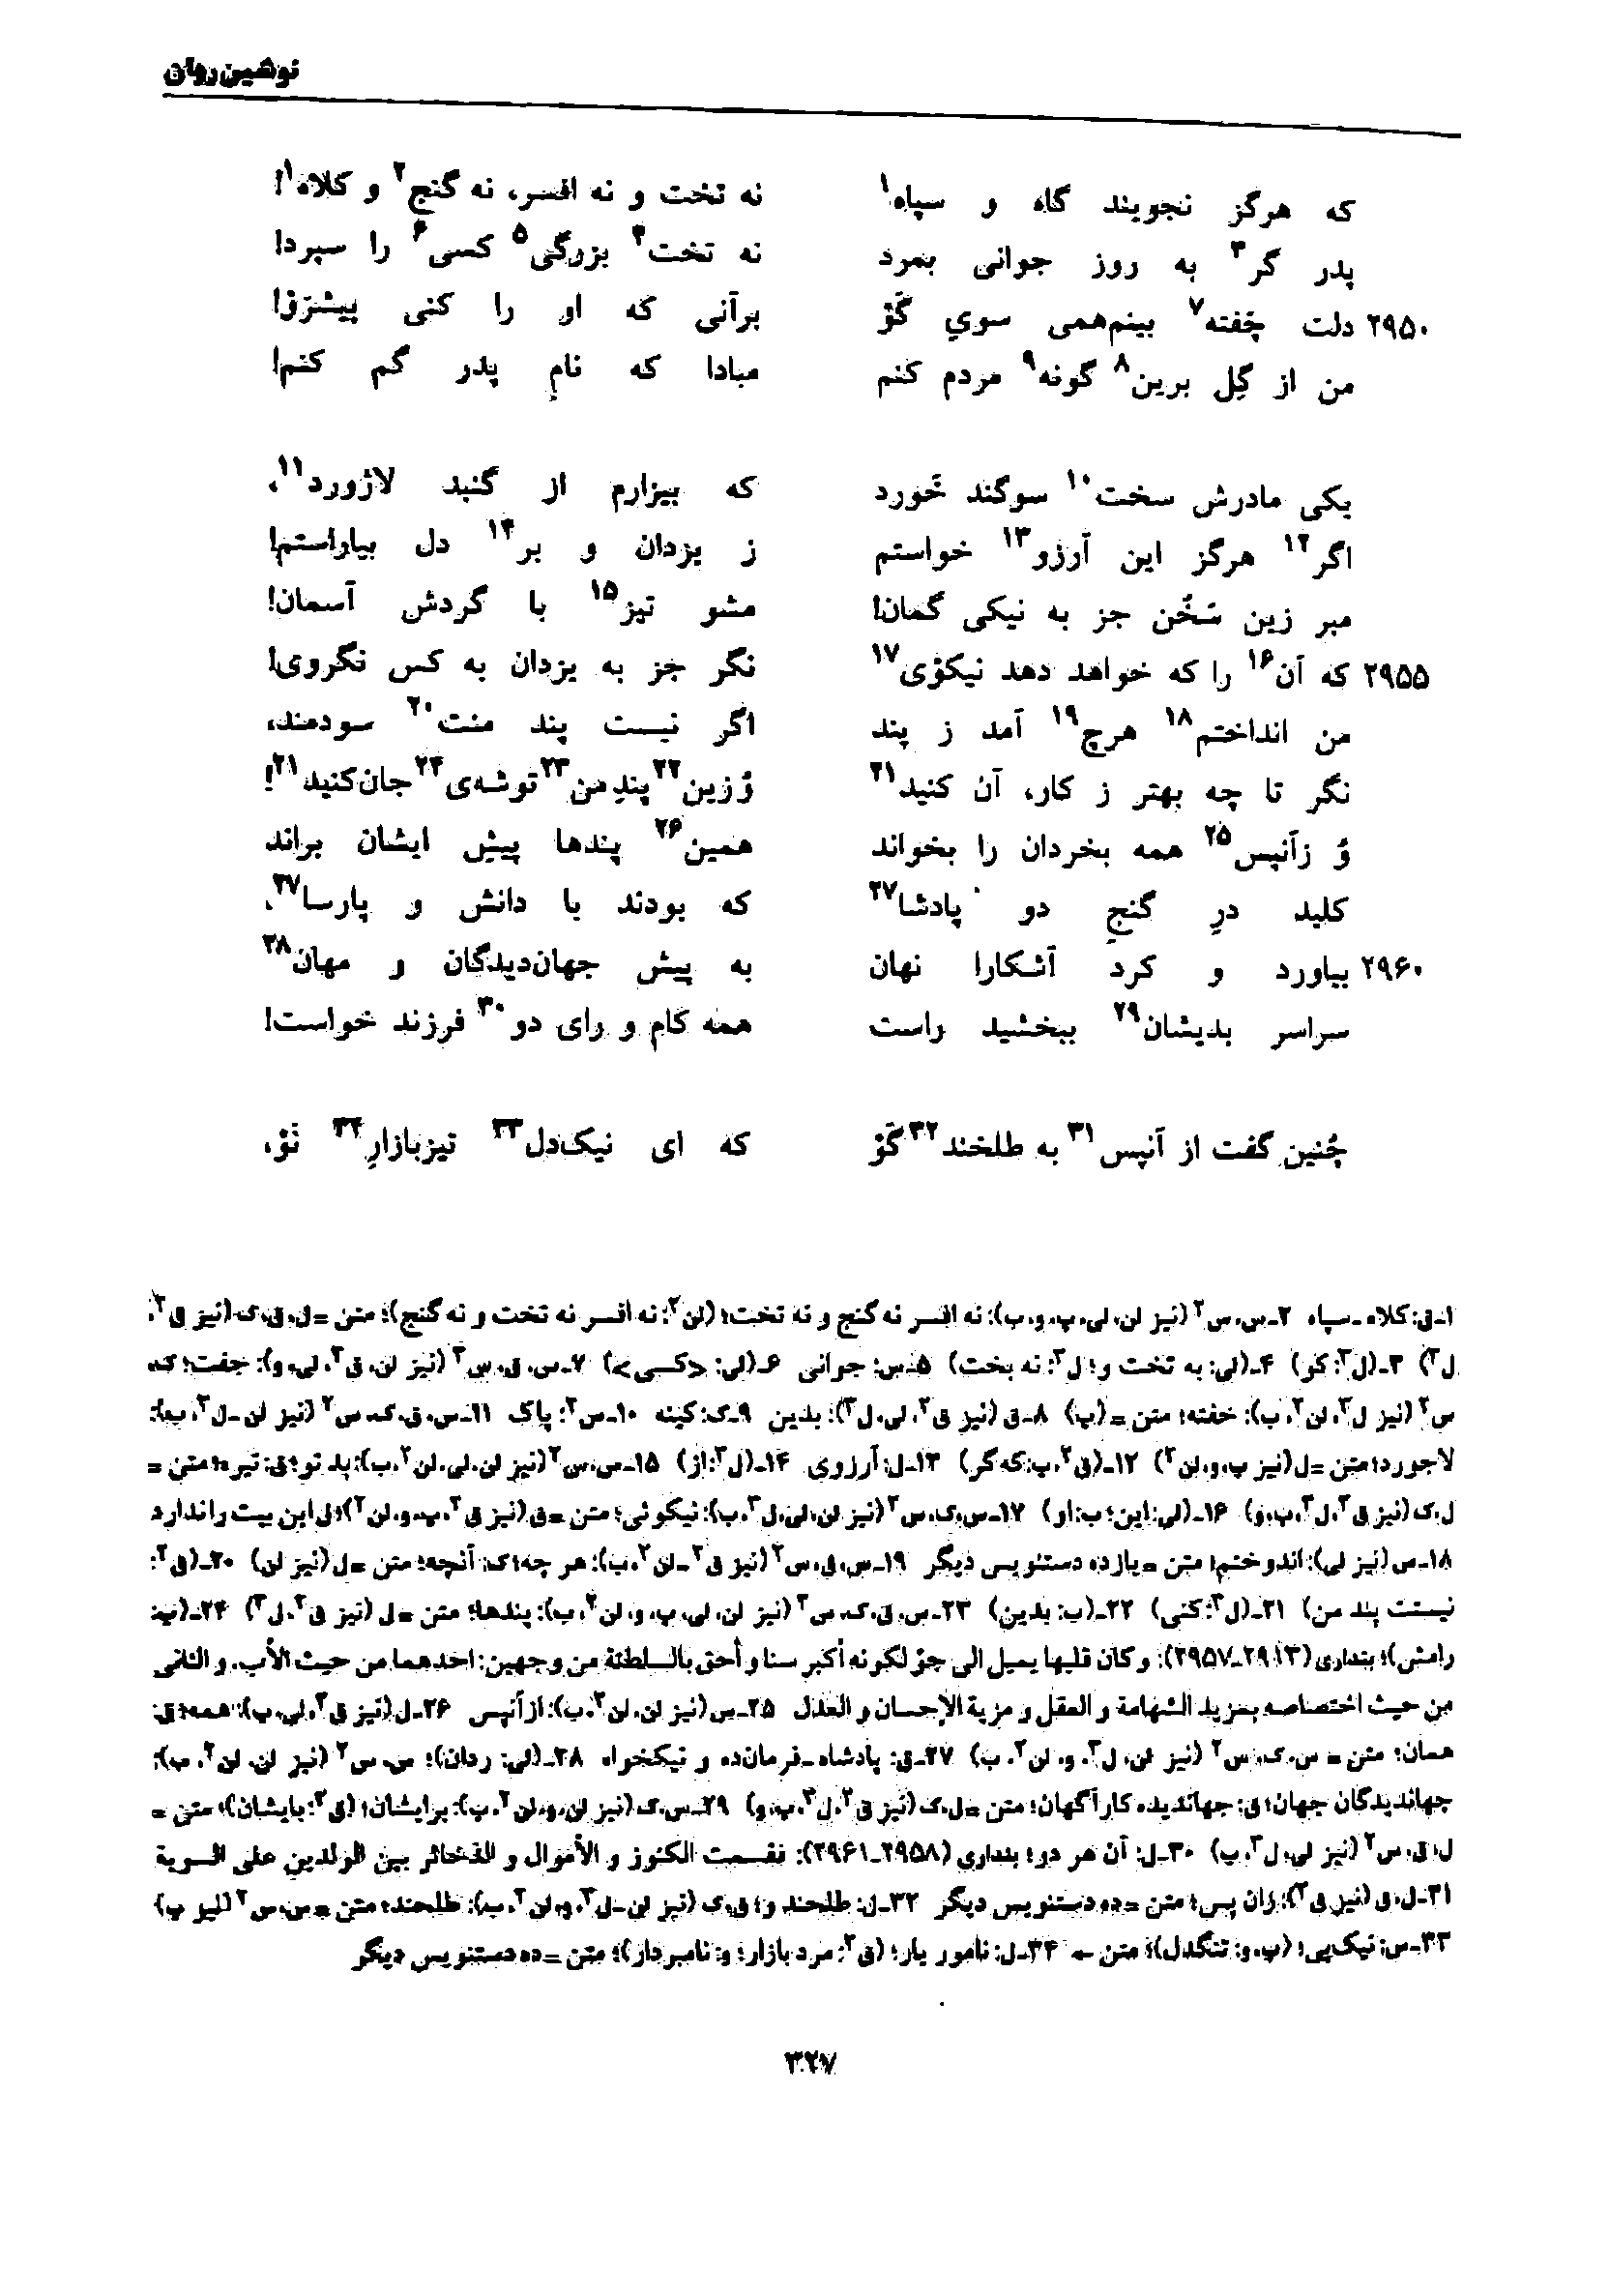 نوشین‌روان
که هرگز نجویند گاه و سپاه۱ نه تخت و نه افسر، نه گنج۲ و کلاه۱!
پدر گر۳ به روز جوانی بمرد نه تخت۴ بزرگی۵ کسی۶ را سپرد!
۲۹۵۰ دلت چَفته۷ بینم‌همی سویِ گَوْ برآنی که او را کنی پیشرَوْ!
من از گِل برین۸ گونه۹ مردم کنم مبادا که نامِ پدر گم کنم!
یکی مادرش سخت۱۰ سوگند خَورد که بیزارم از گنبد لاژورد۱۱،
اگر۱۲ هرگز این آرزو۱۳ خواستم ز یزدان و بر۱۴ دل بیاراستم!
مبر زین سَخُن جز به نیکی گمان! مشو تیز۱۵ با گردش آسمان!
۲۹۵۵ که آن۱۶ را که خواهد دهد نیکوٰی۱۷ نگر جز به یزدان به کس نگروی!
من انداختم۱۸ هرچ۱۹ آمد ز پند اگر نیست پند منت۲۰ سودمند،
نگر تا چه بهتر ز کار، آن کنید۲۱ وُ زین۲۲ پندِ من۲۳ توشه‌ی۲۴ جان‌کنید۲۱!
وُ زآنپس۲۵ همه بخردان را بخواند همین۲۶ پندها پیشِ ایشان براند
کلید درِ گنجِ دو پادشا۲۷ که بودند با دانش و پارسا۲۷،
۲۹۶۰ بیاورد و کرد آشکارا نهان به پیش جهان‌دیدگان و مهان۲۸
سراسر بدیشان۲۹ ببخشید راست همه کام و رای دو۳۰ فرزند خواست!
چُنین گفت از آنپس۳۱ به طلخند۳۲ گَوْ که ای نیک‌دل۳۳ تیزبازارِ۳۴ نَوْ،
۱ـ ق: کلاه ـ سپاه ۲ـ س، س۲ (نیز لن، لی، پ، و، ب): نه افسر نه گنج و نه تخت؛ (لن۲: نه افسر نه تخت و نه گنج)؛ متن = ل، ق، ک (نیز ق۲،
ل۳) ۳ـ (ل۳: کو) ۴ـ (لی: به تخت و؛ ل۳: نه بخت) ۵ـ س: جوانی ۶ـ (لی: <کسی>) ۷ـ س، ق، س۲ (نیز لن، ق۲، لی، و): جفت؛ ک،
س۲ (نیز ل۳، لن۲، ب): خفته؛ متن = (پ) ۸ـ ق (نیز ق۲، لی، ل۳): بدین ۹ـ ک: کینه ۱۰ـ س۲: پاک ۱۱ـ س، ق، ک، س۲ (نیز لن ـ ل۳، ب):
لاجورد؛ متن = ل (نیز پ، و، لن۲) ۱۲ـ (ق۲، پ: که گر) ۱۳ـ ل: آرزوی ۱۴ـ (ل۳: از) ۱۵ـ س، س۲ (نیز لن، لی، لن۲، ب): بد تو؛ ق: تیره؛ متن =
ل، ک (نیز ق۲، ل۳، پ، و) ۱۶ـ (لی: این؛ ب: او) ۱۷ـ س، ک، س۲ (نیز لن، لی، ل۳، ب): نیکوئی؛ متن = ق (نیز ق۲، پ، و، لن۲)؛ ل این بیت را ندارد
۱۸ـ س (نیز لی): اندوختم؛ متن = یازده دستنویس دیگر ۱۹ـ س، ق، س۲ (نیز ق۲ ـ لن۲، ب): هر چه؛ ک: آنچه؛ متن = ل (نیز لن) ۲۰ـ (ق۲:
نیستت پند من) ۲۱ـ (ل۳: کنی) ۲۲ـ (ب: بدین) ۲۳ـ س، ق، ک، س۲ (نیز لن، لی، پ، و، لن۲، ب): پندها؛ متن = ل (نیز ق۲، ل۳) ۲۴ـ (پ:
رامش)؛ بنداری (۲۹۱۳ـ۲۹۵۷): و کان قلبها یمیل الی جوّ لکونه أکبر سنا و أحق بالسلطنة من وجهین: احدهما من حیث الأب. و الثانی
من حیث اختصاصه بمزید الشهامة و العقل و مزیة الإحسان و العدل ۲۵ـ س (نیز لن، لن۲، ب): از آنپس ۲۶ـ ل (نیز ق۲، لی، پ): همه؛ ق:
همان؛ متن = س، ک، س۲ (نیز لن، ل۳، و، لن۲، ب) ۲۷ـ ق: پادشاه ـ فرمان‌ده و نیکخواه ۲۸ـ (لی: ردان)؛ س، س۲ (نیز لن، لن۲، ب):
جهاندیدگان جهان؛ ق: جهاندیده کارآگهان؛ متن = ل، ک (نیز ق۲، ل۳، پ، و) ۲۹ـ س، ک (نیز لن، و، لن۲، ب): برایشان؛ (ق۲: بایشان)؛ متن =
ل، ق، س۲ (نیز لی، ل۳، پ) ۳۰ـ ل: آن هر دو؛ بنداری (۲۹۵۸ـ۲۹۶۱): فقسمت الکنوز و الأموال و الذخائر بین الولدین علی السویة
۳۱ـ ل، ق (نیز ق۲): زان پس؛ متن = ده دستنویس دیگر ۳۲ـ ل: طلحند و؛ ق، ک (نیز لن ـ ل۳، و، لن۲، ب): طلحند؛ متن = س، س۲ (نیز پ)
۳۳ـ س: نیک‌پی؛ (پ، و: تنگدل)؛ متن ← ۳۴ـ ل: نامور یار؛ (ق۲: مرد بازار؛ و: نامبردار)؛ متن = ده دستنویس دیگر
۳۲۷